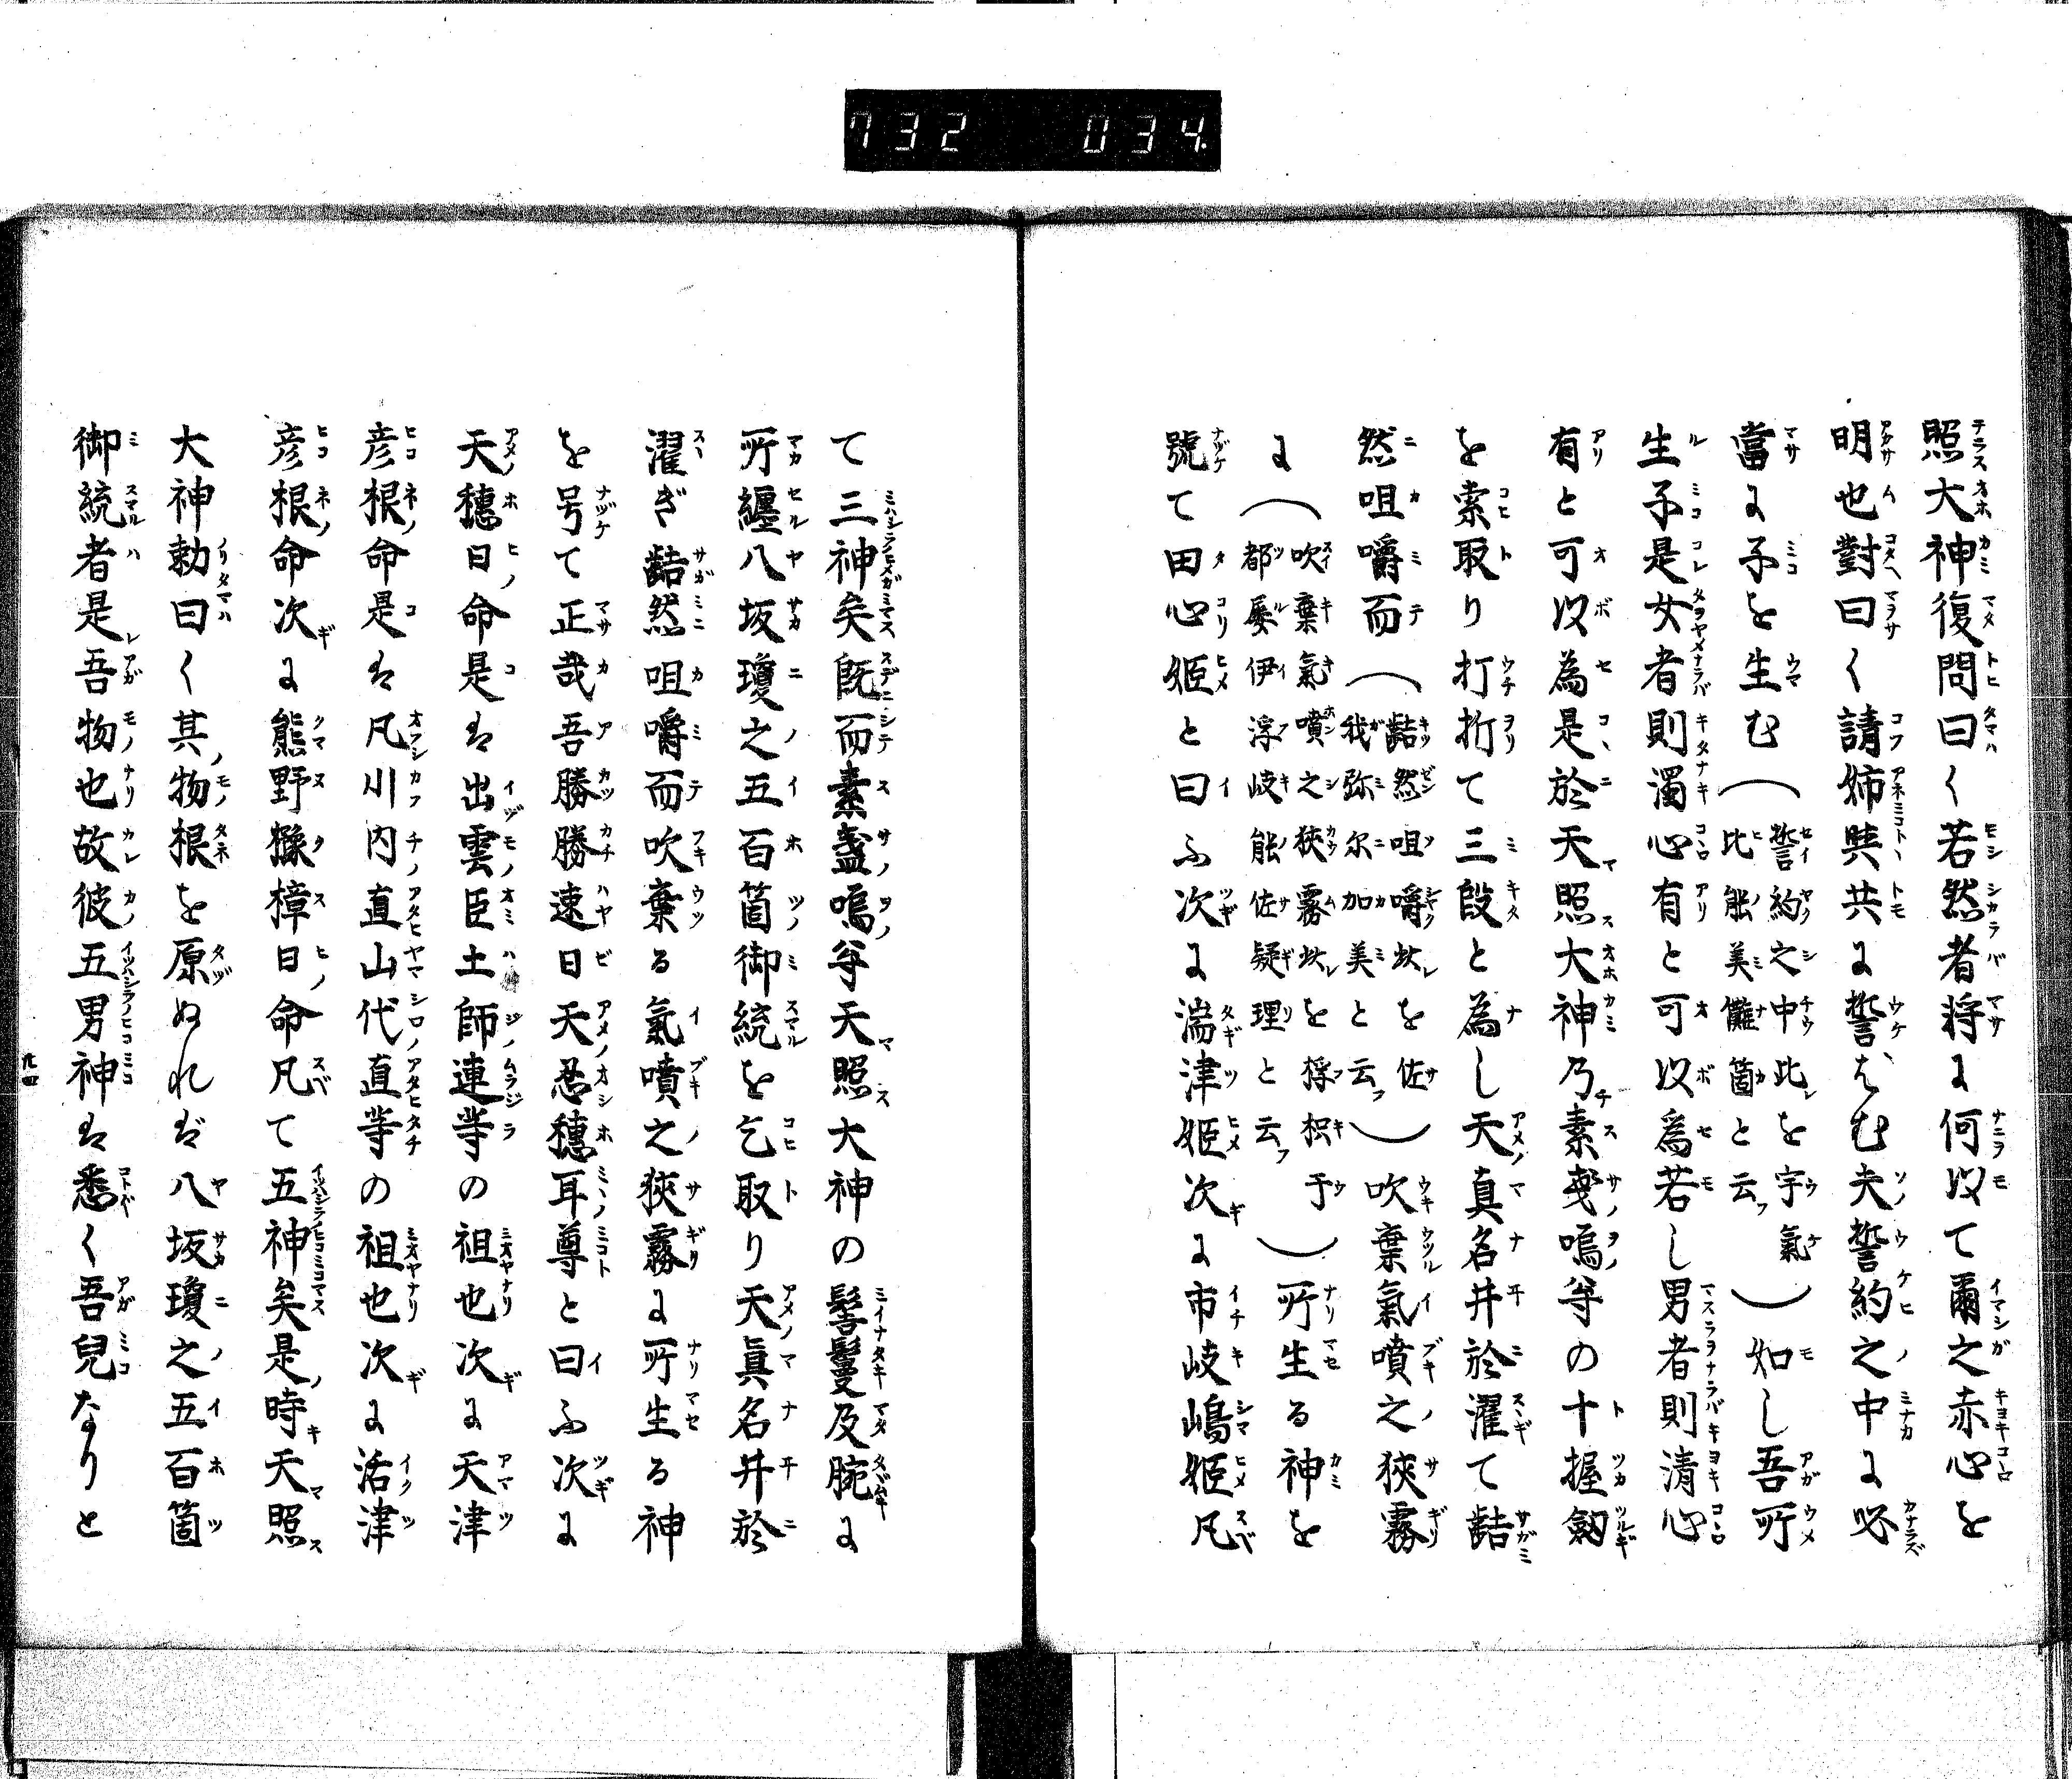 732 034
照大神復問曰く若然者将に何以て爾之赤心を
明也對曰く請姉與共に誓はむ夫誓約之中に必
當に子を生む（誓約之中此を宇氣比能美儺箇と云）如し吾所
生子是女者則濁心有と可以為若し男者則清心
有と可以為是於天照大神乃素戔嗚尊の十握劔
を索取り打折て三段と為し天真名井於濯て齰
然咀嚼而（齰然咀嚼此を佐我弥尓加美と云）吹棄氣噴之狹霧
に（吹棄氣噴之狹霧此を浮枳于都屡伊浮岐能佐疑理と云）所生る神を
號て田心姫と曰ふ次に湍津姫次に市岐嶋姫凡
て三神矣既而素盞嗚尊天照大神の髻鬘及腕に
所纒八坂瓊之五百箇御統を乞取り天眞名井於
濯ぎ齰然咀嚼而吹棄る氣噴之狹霧に所生る神
を号て正哉吾勝勝速日天忍穗耳尊と曰ふ次に
天穗日命是は出雲臣土師連等の祖也次に天津
彦根命是は凡川内直山代直等の祖也次に活津
彦根命次に熊野櫲樟日命凡て五神矣是時天照
大神勅曰く其物根を原ぬれば八坂瓊之五百箇
御統者是吾物也故彼五男神は悉く吾兒なりと
九四